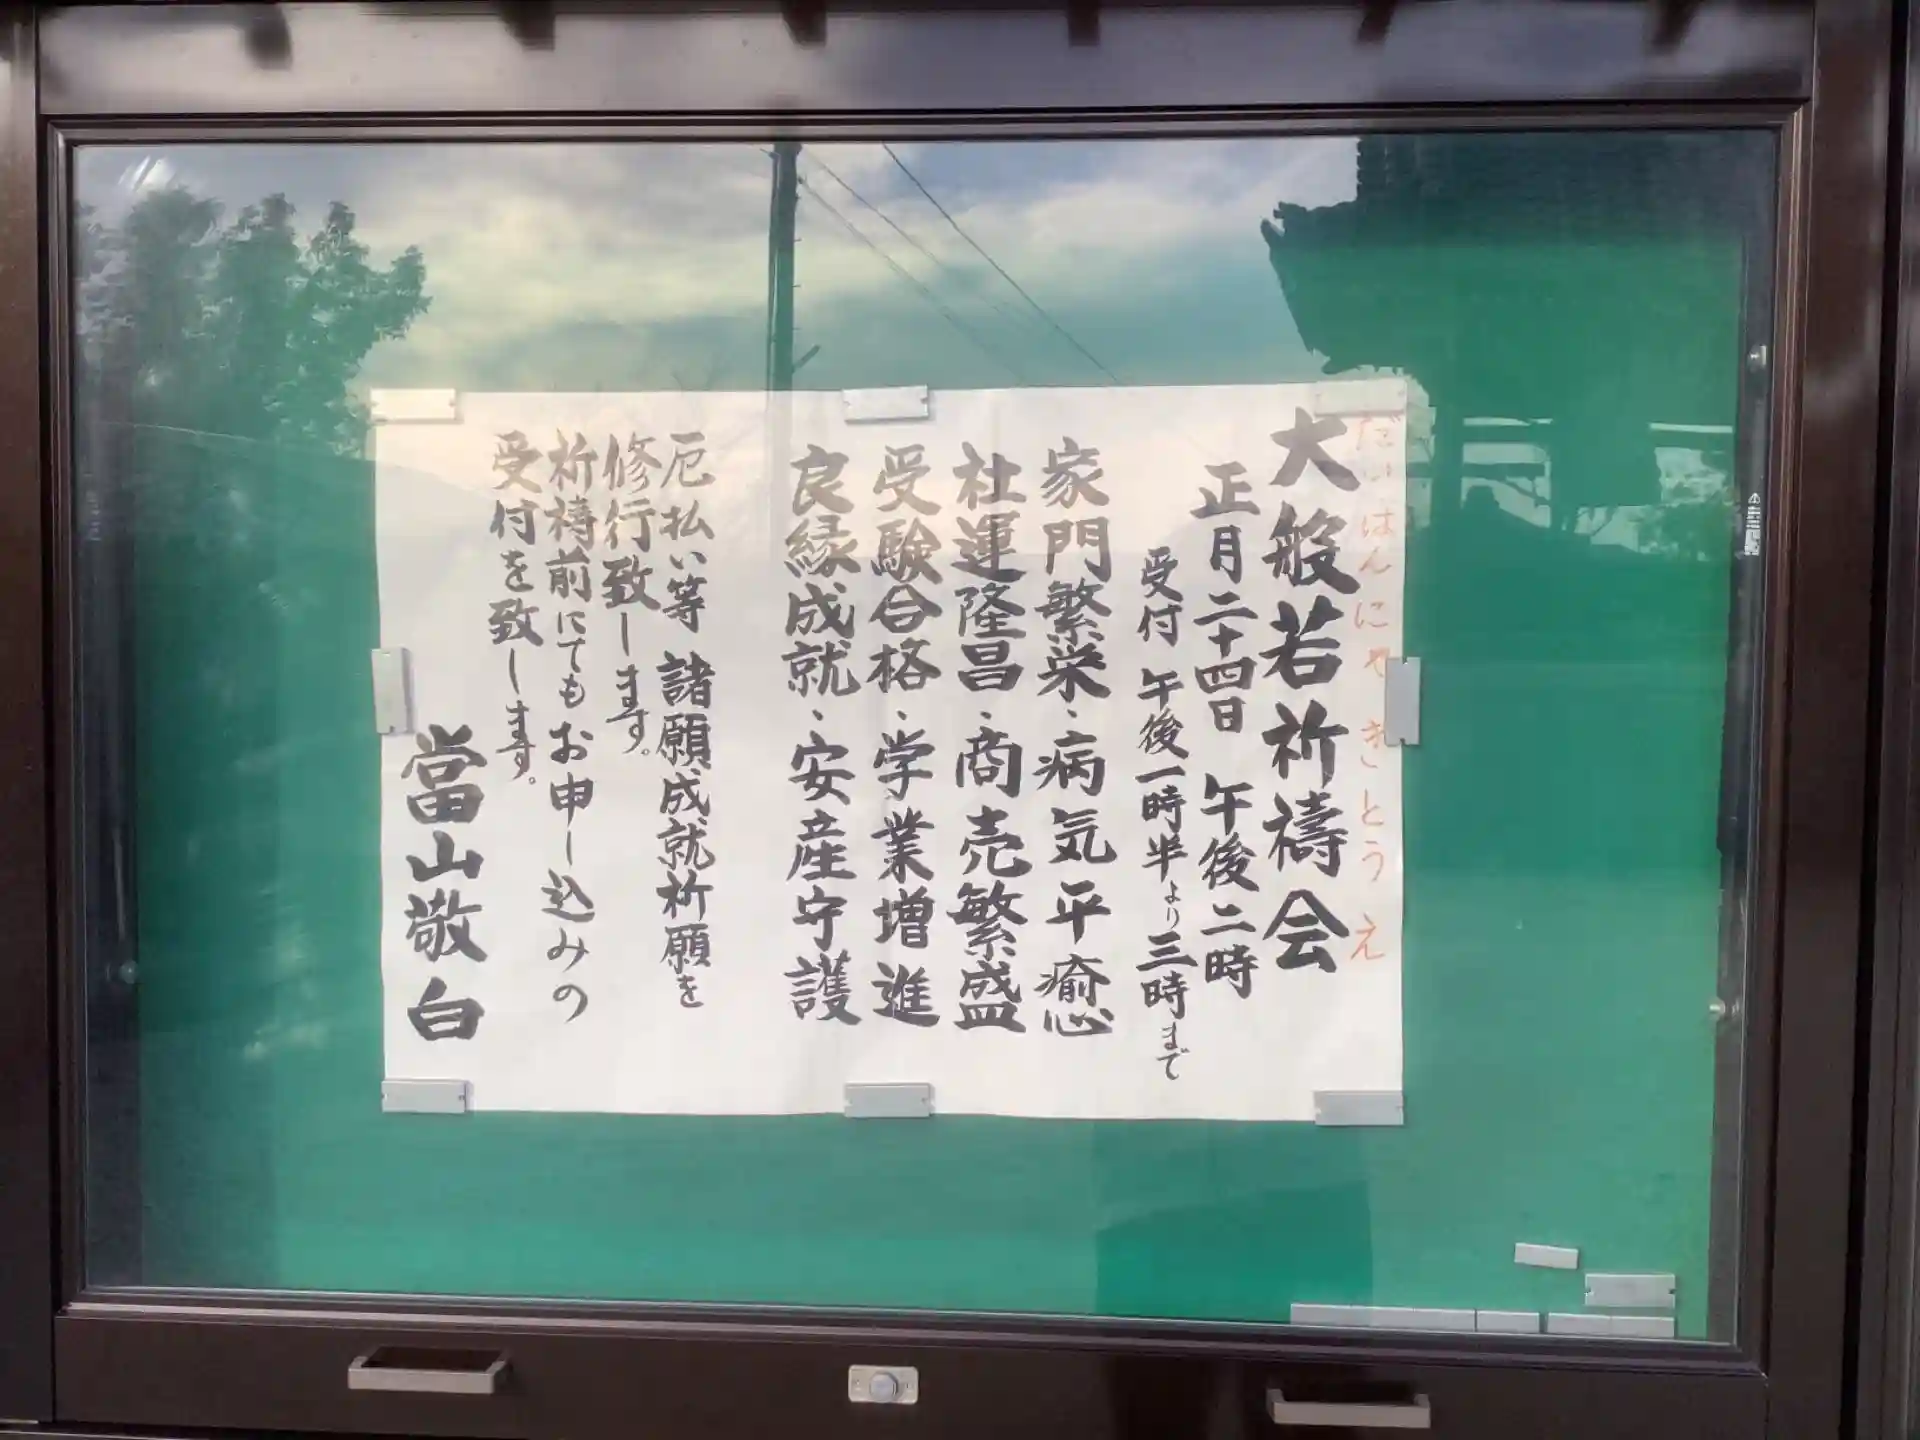 だいはんにゃ きとうえ
大般若祈禱会
正月二十四日 午後二時
受付 午後一時半より三時まで
家門繁栄、病気平癒
社運隆昌、商売繁盛
受験合格、学業増進
良縁成就、安産守護
厄払い等 諸願成就祈願を
修行致します。
祈禱前にてもお申し込みの
受付を致します。
當山敬白